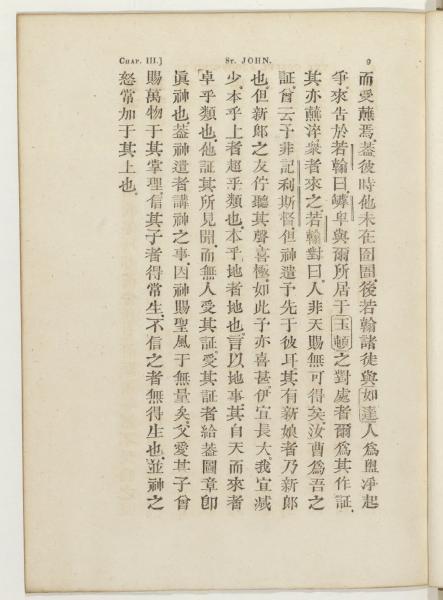 CHAP. III.] ST. JOHN. 9
而受蘸焉蓋彼時他未在囹圄後若翰諸徒與如達人爲盥凈起
爭來告於若翰曰嘑卑與爾所居于玉頓之對處者爾爲其作証
其亦蘸浴衆者來之若翰對曰人非天賜無可得矣汝曹爲吾之
証曾云予非記利斯督但神遣予先于彼耳其有新娘者乃新郎
也但新郎之友佇聽其聲喜極如此予亦喜甚伊宜長大我宜減
少本乎上者超乎類也本乎地者地也言以地事其自天而來者
卓乎類也他証其所見聞而無人受其証受其証者給蓋圖章卽
眞神也蓋神遣者講神之事因神賜聖風于無量矣父愛其子曾
賜萬物于其掌理信其子者得常生不信之者無得生也並神之
怒常加于其上也